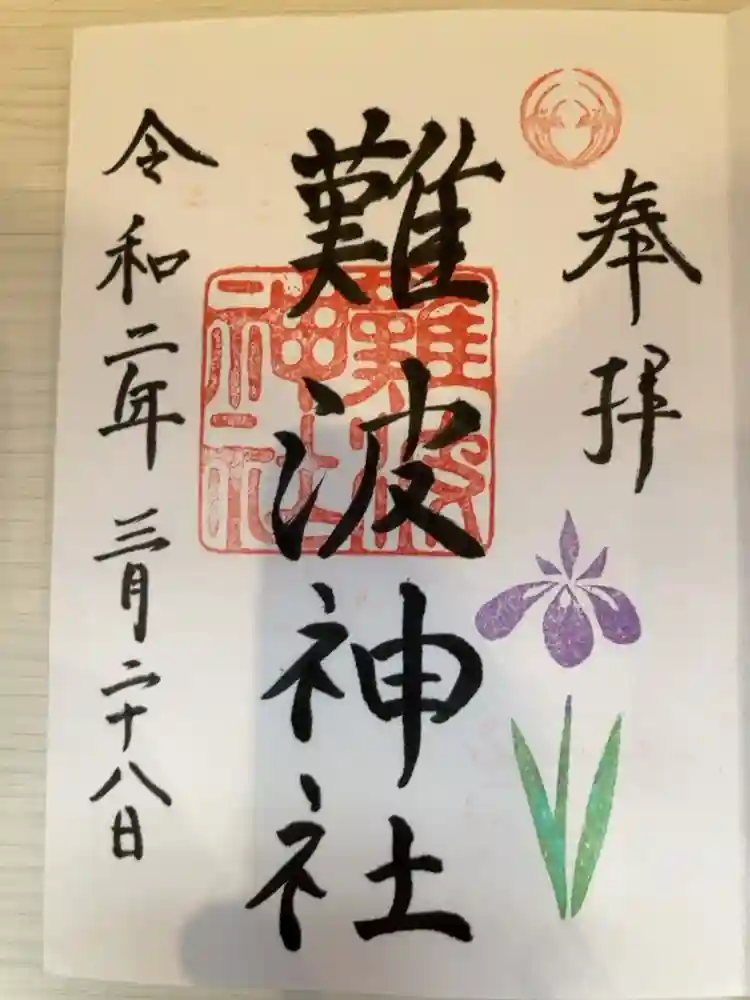 奉拝
難波神社
難波
神社
令和二年三月二十八日